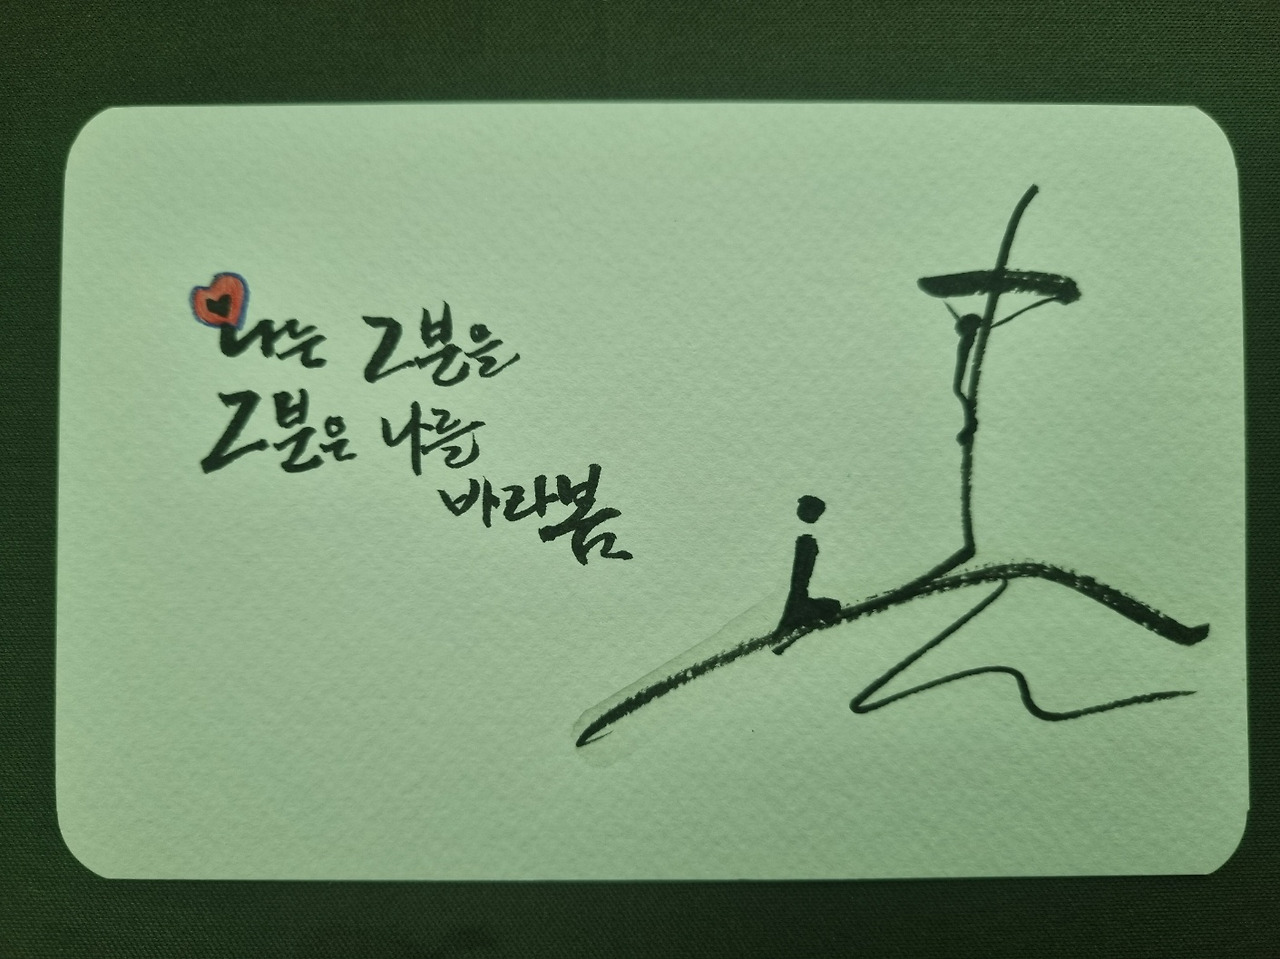 나는 그분을
그분은 나를
바라봄